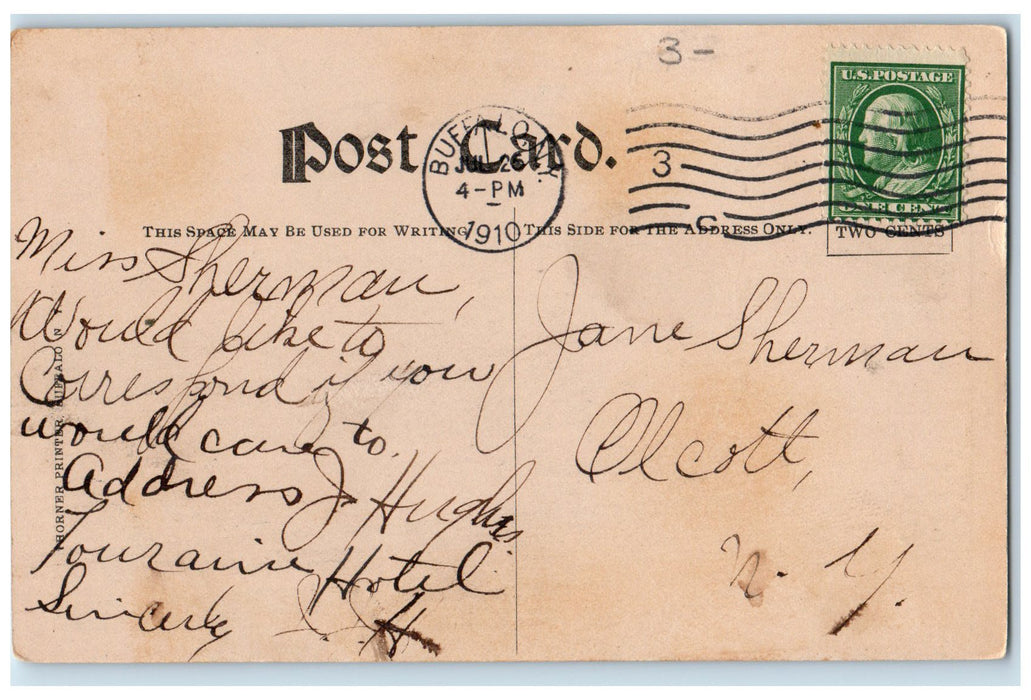 3-
U.S. POSTAGE
ONE CENT
TWO CENTS
Post Card.
BUFFALO, N.Y.
JUL 26
4-PM
1910
3
C
THIS SPACE MAY BE USED FOR WRITING
THIS SIDE FOR THE ADDRESS ONLY.
Miss Sherman,
Would like to
Correspond if you
would care to.
Address J Hughs.
Touraine Hotel
Sincerely J. H
Jane Sherman
Olcott,
N. Y.
THORNER PRINTER, BUFFALO N